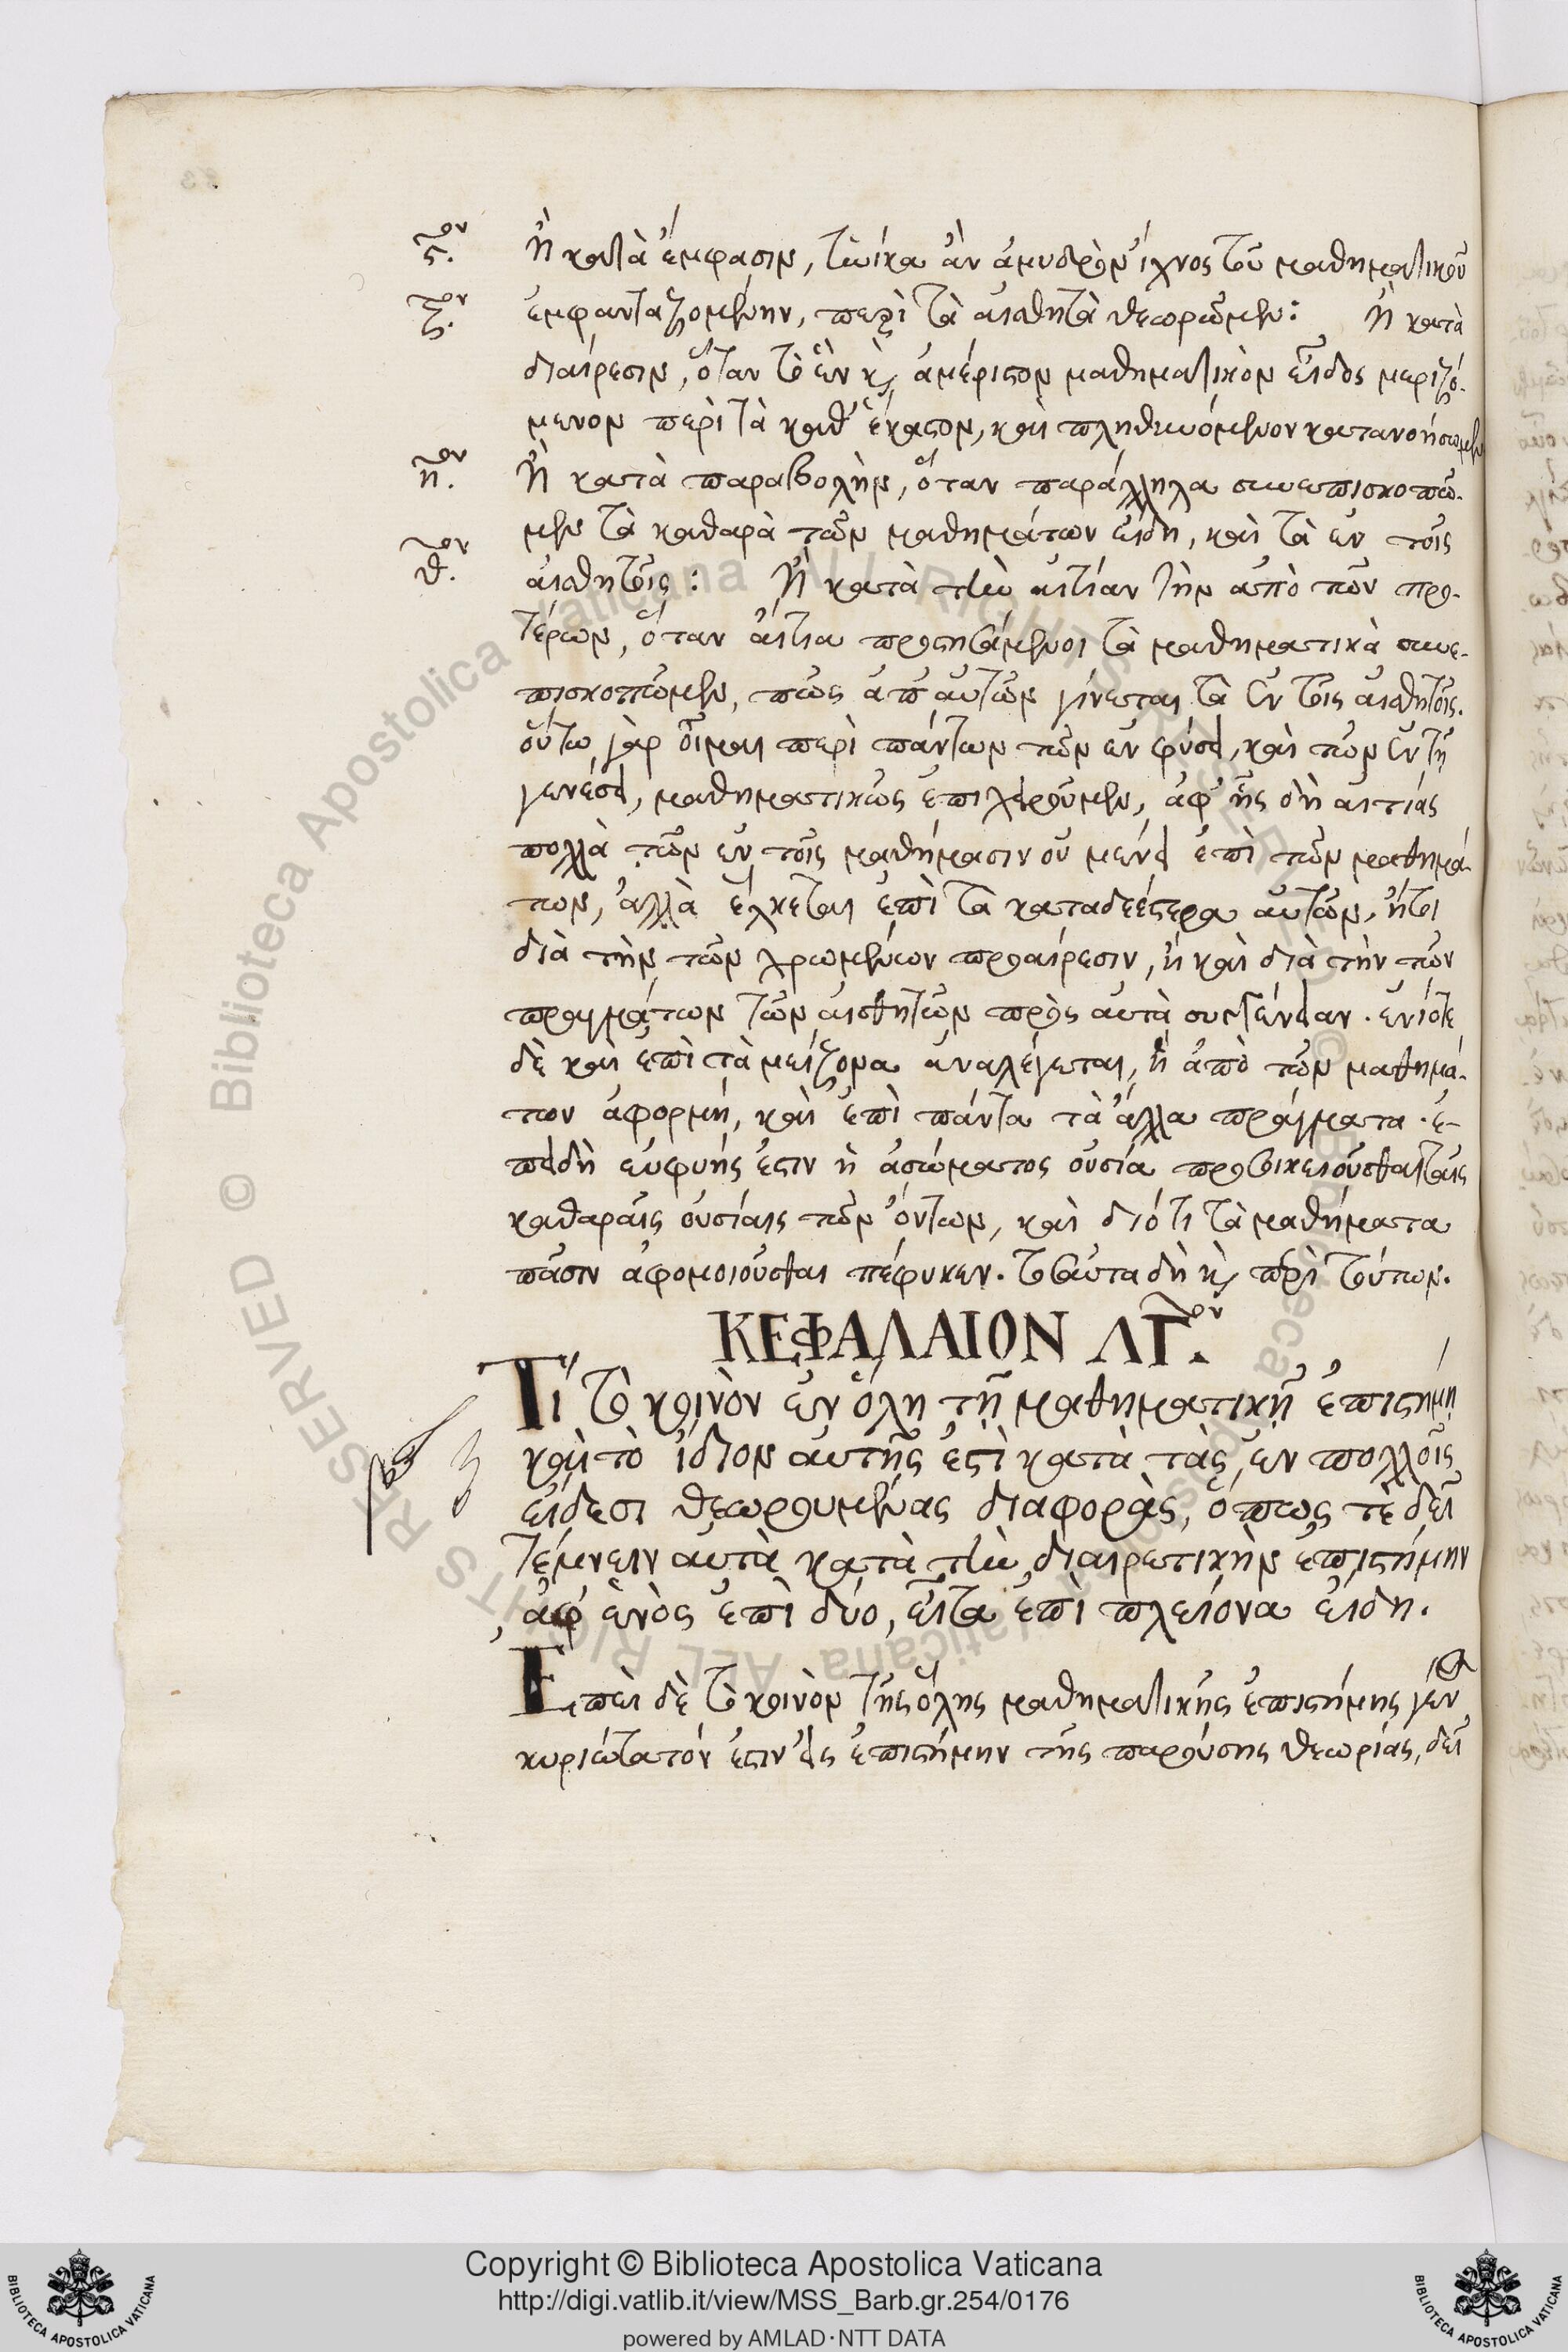 ςʹ.ον Ἢ κατὰ ἔμφασιν, ἡνίκα ἂν ἀμυδρὸν ἴχνος τοῦ μαθηματικοῦ
ζʹ.ον ἐμφανταζομένην, περὶ τὰ αἰσθητὰ θεωρῶμεν: Ἢ κατὰ
διαίρεσιν, ὅταν τὸ ἓν κ̀ ἀμέριστον μαθηματικὸν εἶδος μεριζό-
μενον περὶ τὰ καθ' ἕκαστον, καὶ πληθυνόμενον κατανοήσωμεν
η.ον Ἢ κατὰ παραβολὴν, ὅταν παράλληλα συνεπισκοπῶ-
μεν τὰ καθαρὰ τῶν μαθημάτων εἴδη, καὶ τὰ ἐν τοῖς
θ.ον αἰσθητοῖς: Ἢ κατὰ τὴν αἰτίαν τὴν ἀπὸ τῶν προ-
τέρων, ὅταν αἴτια προστησάμενοι τὰ μαθηματικὰ συνε-
πισκοπῶμεν, πῶς ἀπ' αὐτῶν γίνεται τὰ ἐν τοῖς αἰσθητοῖς.
οὕτω γὰρ οἶμαι περὶ πάντων τῶν ἐν φύσει, καὶ τῶν ἐν τῇ
γενέσει, μαθηματικῶς ἐπιχειροῦμεν, ἀφ' ἧς δὴ αἰτίας
πολλὰ τῶν ἐν τοῖς μαθήμασιν οὐ μένει ἐπὶ τῶν μαθημά-
των, ἀλλὰ ἕλκεται ἐπὶ τὰ καταδεέστερα αὐτῶν, ἤτοι
διὰ τὴν τῶν χρωμένων προαίρεσιν, ἢ καὶ διὰ τὴν τῶν
πραγμάτων τῶν αἰσθητῶν πρὸς αὐτὰ συγγένειαν. ἐνίοτε
δὲ καὶ ἐπὶ τὰ μείζονα ἀναλέγεται, ἡ ἀπὸ τῶν μαθημά-
των ἀφορμὴ, καὶ ἐπὶ πάντα τὰ ἄλλα πράγματα. ἐ-
πειδὴ εὐφυής ἐστιν ἡ ἀσώματος οὐσία προσοικειοῦσθαι ταῖς
καθαραῖς οὐσίαις τῶν ὄντων, καὶ διότι τὰ μαθήματα
πᾶσιν ἀφομοιοῦσθαι πέφυκεν. τοσαῦτα δὴ κ̀ περὶ τούτων.
ΚΕΦΑΛΑΙΟΝ ΛΓ.ον
Τί τὸ κοινὸν ἐν ὅλῃ τῇ μαθηματικῇ ἐπιστήμῃ
καὶ τὸ ἴδιον αὐτῆς ἐστὶ κατὰ τὰς ἐν πολλοῖς
εἴδεσι θεωρουμένας διαφορὰς, ὅπως τὲ δεῖ
τέμνειν αὐτὰ κατὰ τὴν διαιρετικὴν ἐπιστήμην
ἀφ' ἑνὸς ἐπὶ δύο, εἶτα ἐπὶ πλείονα εἴδη.
Ἐπεὶ δὲ τὸ κοινὸν τῆς ὅλης μαθηματικῆς ἐπιστήμης γένος
κυριώτατόν ἐστιν εἰς ἐπιστήμην τῆς παρούσης θεωρίας, δεῖ
Copyright © Biblioteca Apostolica Vaticana
http://digi.vatlib.it/view/MSS_Barb.gr.254/0176
powered by AMLAD·NTT DATA